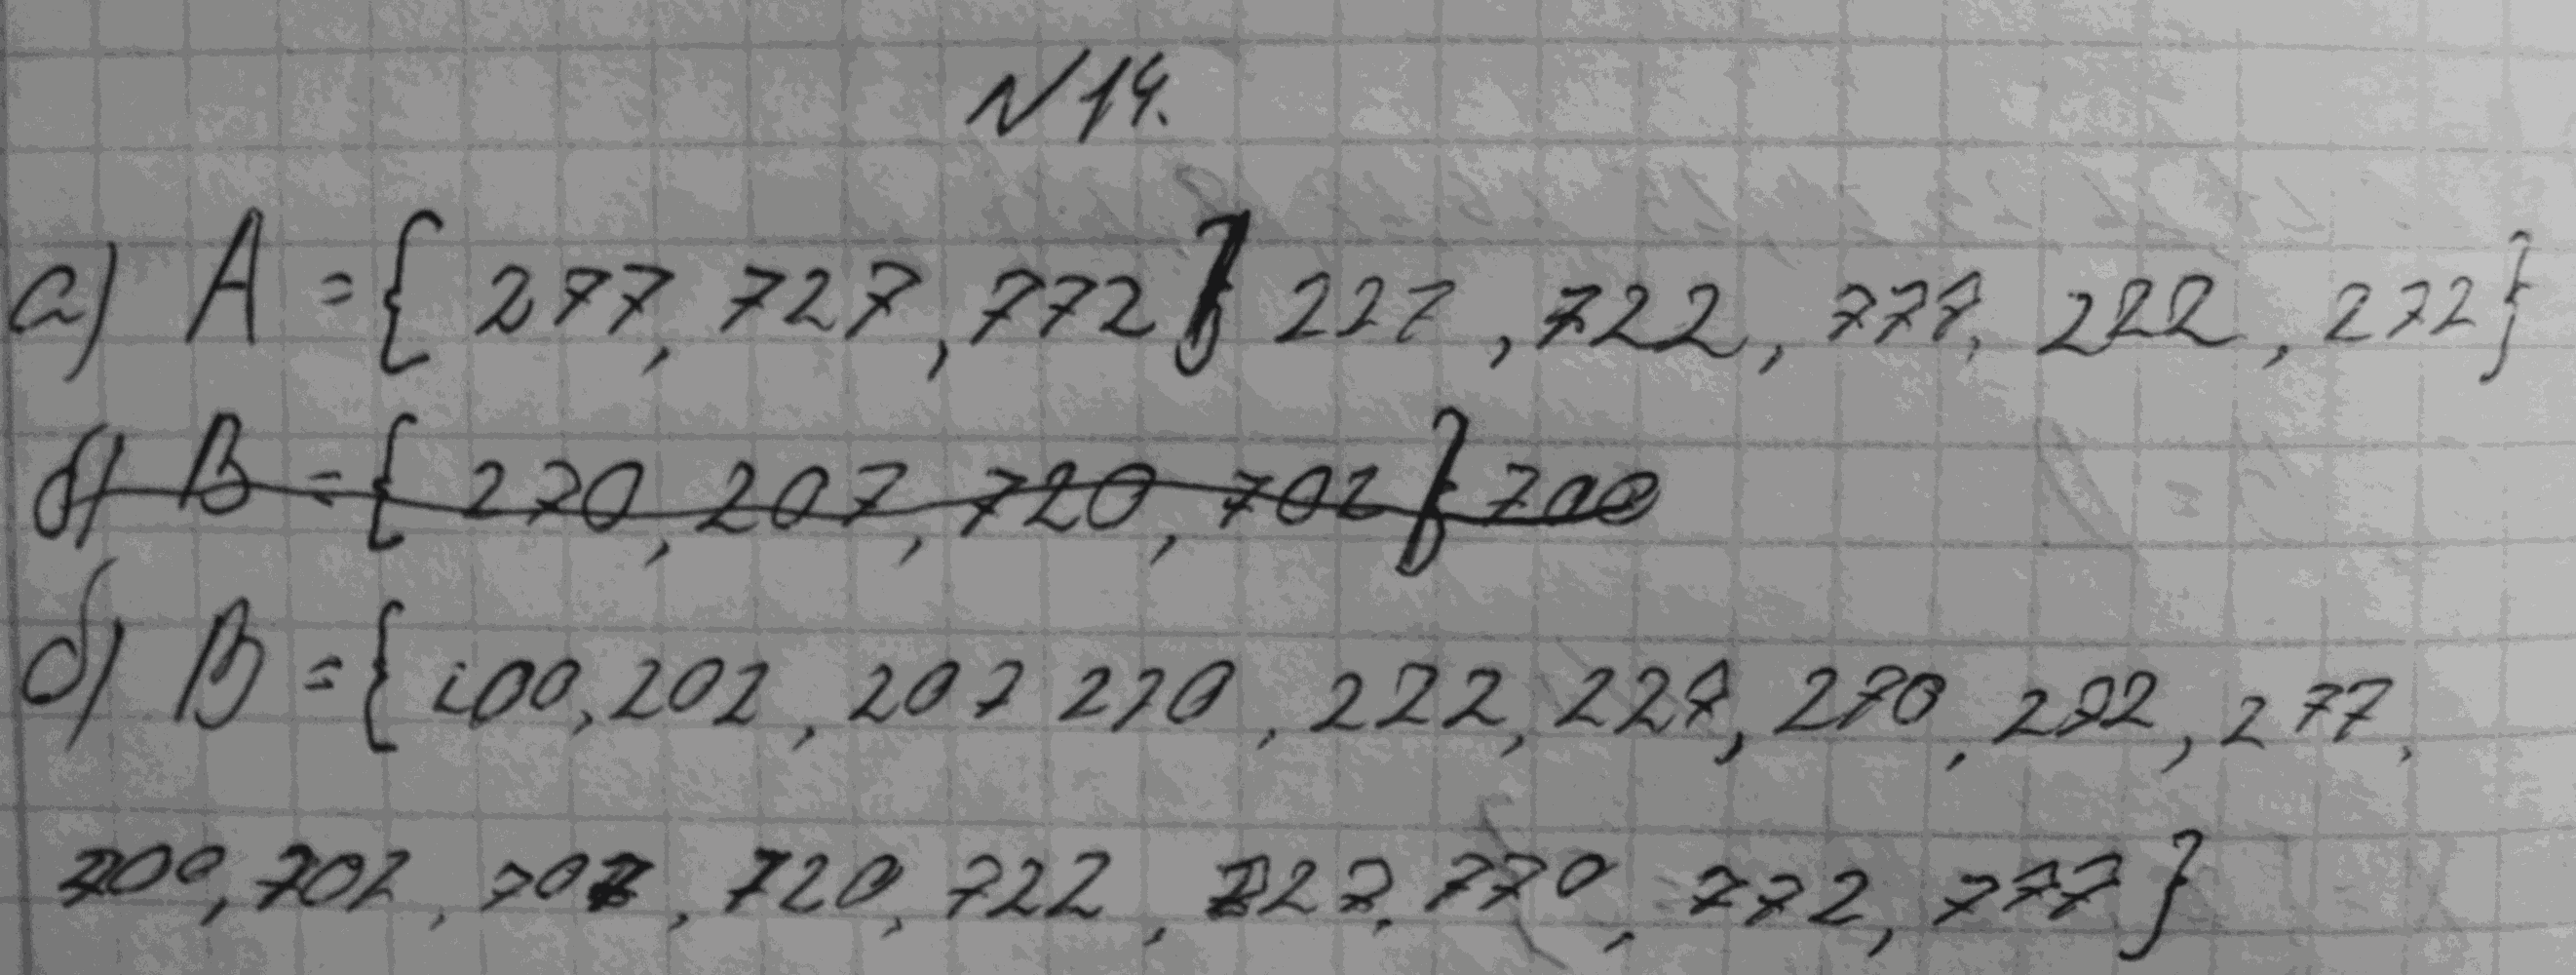 №14.
а) A = { 277, 727, 772 227, 722, 777, 222, 272}
б) B = { 270, 207, 720, 702 } 700
б) B = { 200, 202, 207 220, 222, 227, 270, 272, 277,
700, 702, 707, 720, 722, 727, 770, 772, 777 }